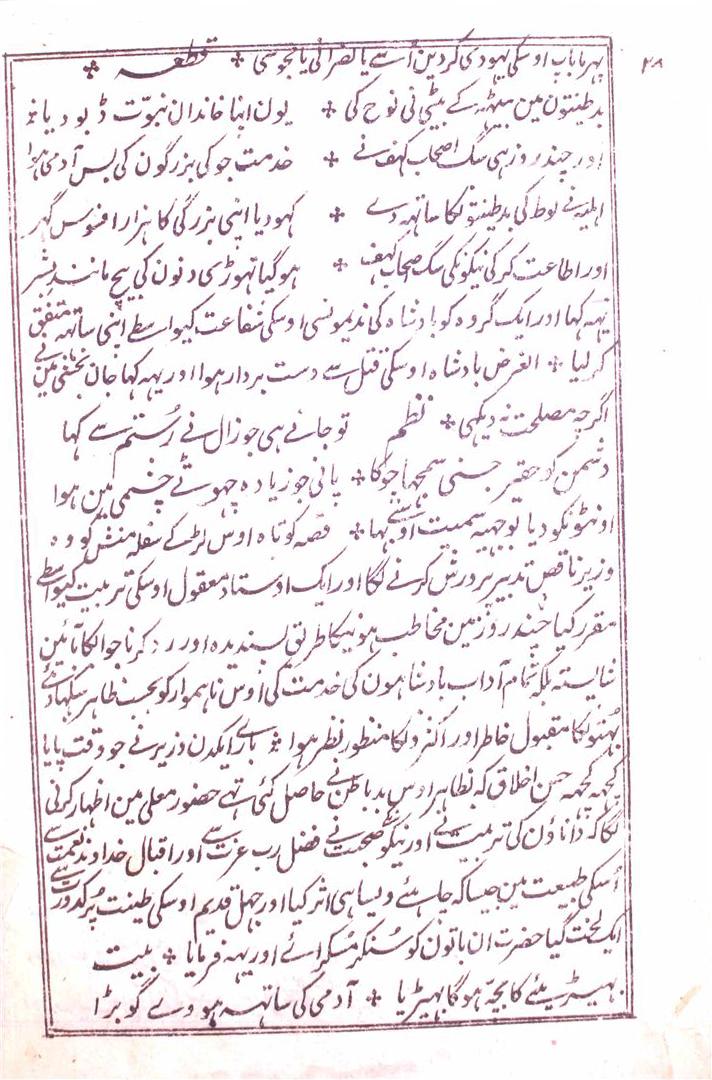 ۲۸
پہر ماباپ اوسکی یہودی کردین اُسے یا نصرانی یا مجوسی ✤ قطعہ ✤
بد طینتون مین بیٹھہ کے بیٹی نی نوح کی ✤ یون اپنا خاندان نبوّت ڈبو دیا
اور چند روز ہی سگ اصحاب کہف نے ✤ خدمت جو کی بزرگون کی بس آدمی ہوا
اہلیہ نے لوط کی بد طینتو نکا ساتہہ دے ✤ کہو دیا اپنی بزرگی کا ہزار افسوس گہر
اور اطاعت کرکی نیکونکی سگ اصحاب کہف ✤ ہو گیا تہوڑی دنون کی بیچ مانند بشر
یہہ کہا اور ایک گروہ کو بادشاہ کی ندیمونسی اوسکی شفاعت کیواسطے اپنی ساتہہ متفق
کر لیا ✤ الغرض بادشاہ اوسکی قتل سے دست بردار ہوا اور یہہ کہا جان بخشی مین نے
اگرچہ مصلحت نہ دیکہی ✤ نظم تو جانے ہی جو زال نے رُستم سے کہا
دشمن کو حقیر جسنی سمجہا چوکا ✤ پانی جو زیادہ چہوٹے چشمی مین ہوا
اونٹونکو دیا بوجہہ سمیت اوسنے بہا ✤ قصہ کوتاہ اوس لڑکے سفلہ منش کو وہ
وزیر ناقص تدبیر پرورش کرنے لگا اور ایک اوستاد معقول اوسکی تربیت کیواسطے
مقرر کیا چند روز مین مخاطب ہونیکا طریق پسندیدہ اور رد کرنا جوابکا بآئین
شائستہ بلکہ تمام آداب بادشاہون کی خدمت کی اوس ناہموار کو بحسب ظاہر سکہا دئے
بہُتونکا مقبول خاطر اور اکثرونکا منظور نظر ہوا ✤ بارے ایکدن وزیر نے جو وقت پایا
کچہہ کچہہ حسن اخلاق کہ بظاہر اوس بد باطن نے حاصل کئی تہے حضور معلی مین اظہار کرنی
لگا کہ داناؤن کی تربیت نے اور نیکو نکی صحبت نے فضل رب عزت سے اور اقبال خداوند نعمت سے
اُسکی طبیعت مین جیسا کہ چاہئے ویسا ہی اثر کیا اور جہل قدیم اوسکی طینت پُر کدورت سے
ایک لخت گیا حضرت ان باتون کو سُنکر مُسکرائے اور یہہ فرمایا ✤ بیت
بہیڑیئے کا بچّہ ہوگا بہیڑیا ✤ آدمی کی ساتہہ ہووے گو بڑا